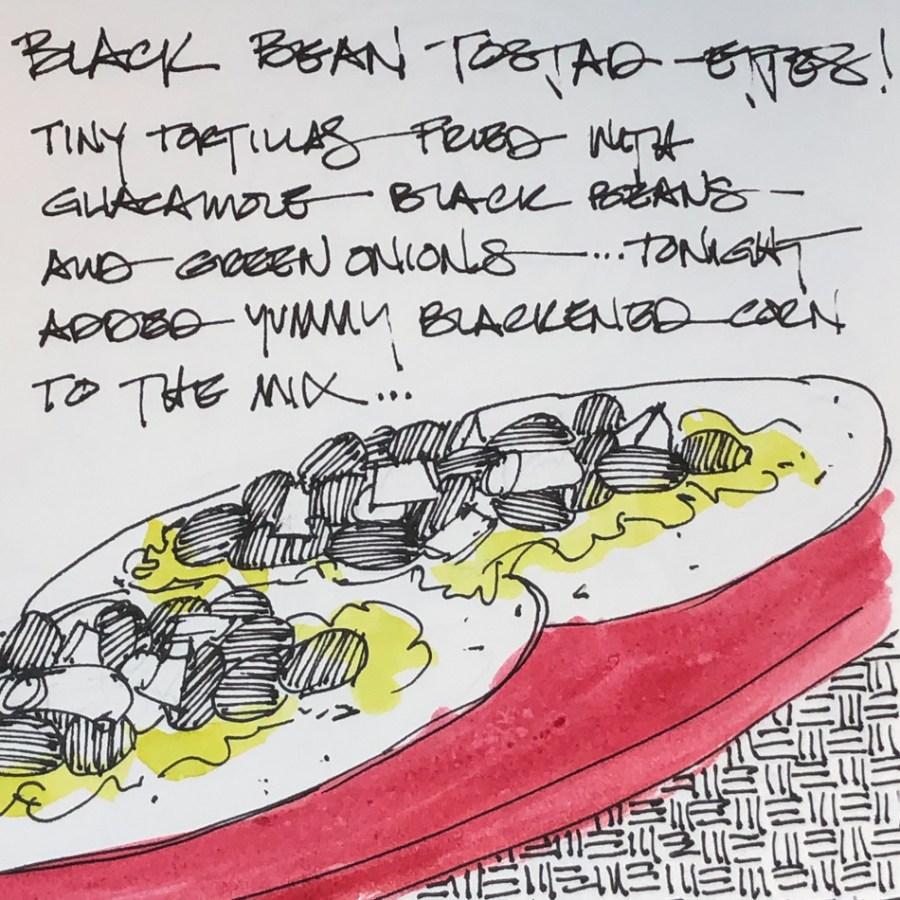 BLACK BEAN TOSTAD-ETTES!
TINY TORTILLAS FRIED WITH
GUACAMOLE - BLACK BEANS -
AND GREEN ONIONS ... TONIGHT
ADDED YUMMY BLACKENED CORN
TO THE MIX...